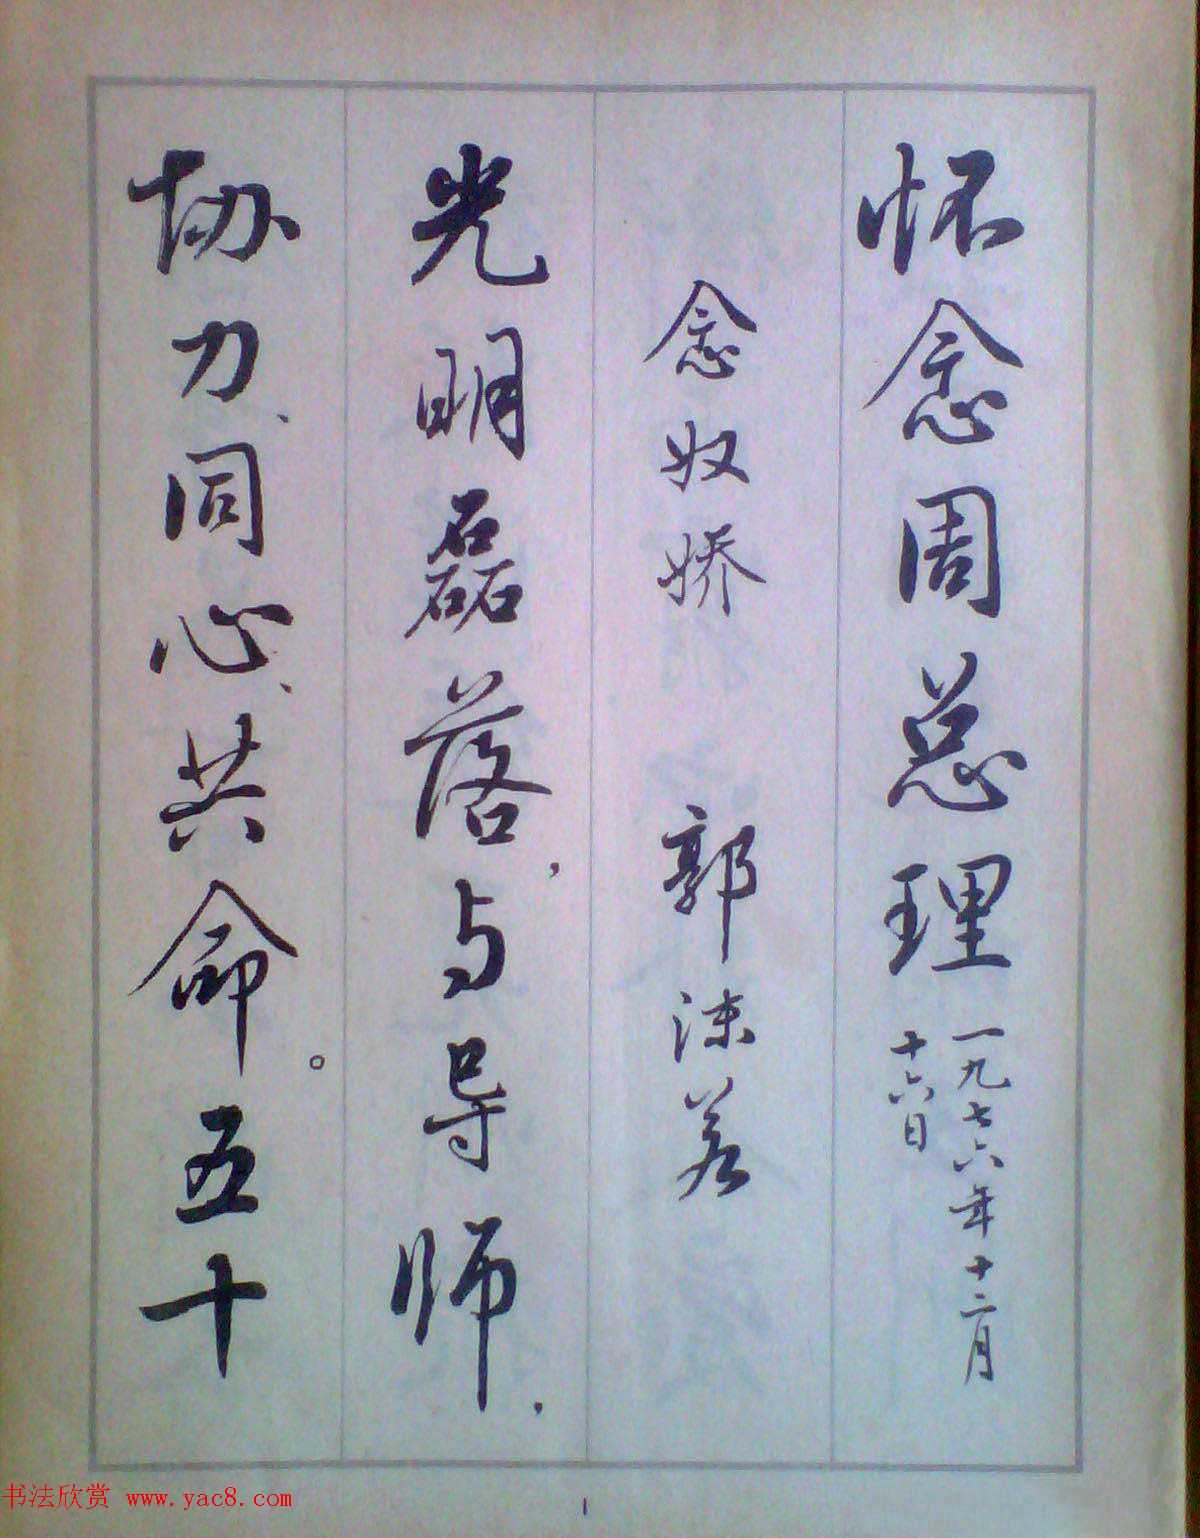 怀念周总理
一九七六年十二月
十六日
念奴娇 郭沫若
光明磊落，与导师，
协力、同心、共命。五十
书法欣赏 www.yac8.com
1